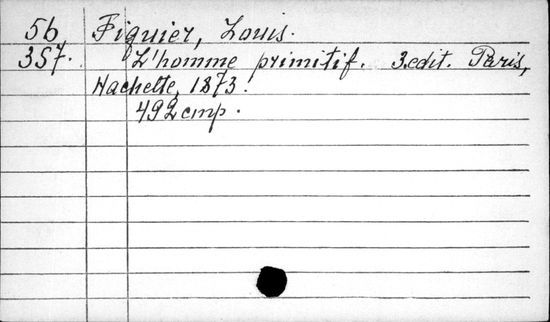 56 Figuier, Louis.
357. L'homme primitif. 3.edit. Paris,
Hachette, 1873.
492 стр.